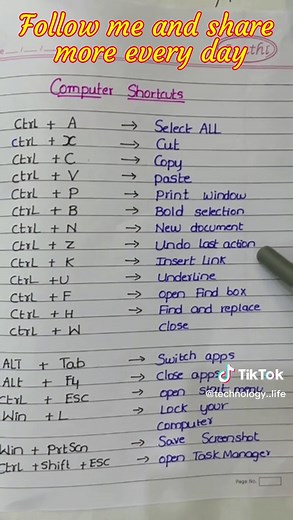 Follow me and share
more every day
Computer Shortcuts
Ctrl + A → Select ALL
ctrl + X → Cut
Ctrl + C → Copy
ctrl + V → paste
Ctrl + P → Print window
Ctrl + B → Bold selection
Ctrl + N → New document
Ctrl + Z → Undo last action
Ctrl + K → Insert Link
Ctrl + U → Underline
Ctrl + F → open Find box
Ctrl + H → Find and replace
ctrl + W close
ALT + Tab → Switch apps
Alt + F4 → Close apps
Ctrl + ESC → open start menu
Win + L → Lock your
computer
Win + PrtScn → Save Screenshot
Ctrl + Shift + ESC → open Task Manager
TikTok
@technology..life
Page No.